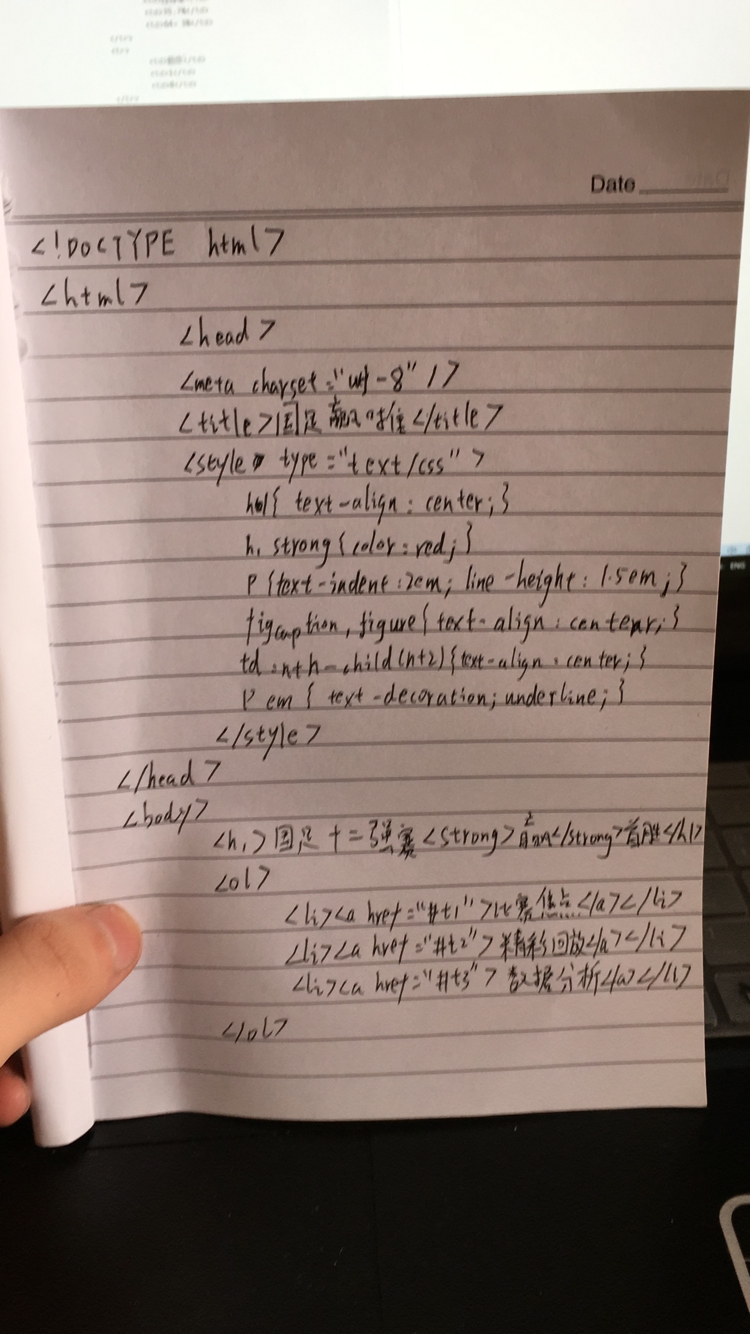 Date
<!DOCTYPE html>
<html>
<head>
<meta charset="utf-8" />
<title>国足 </title>
<style type="text/css">
h1{ text-align: center;}
h1 strong{color:red;}
P{text-indent:2em; line-height: 1.5em;}
figcaption, figure{text-align: center;}
td:nth-child(n+2){text-align:center;}
P em{ text-decoration; underline;}
</style>
</head>
<body>
<h1>国足十二强赛<strong></strong>首胜</h1>
<ol>
<li><a href="#t1">比赛焦点</a></li>
<li><a href="#t2">精彩回放</a></li>
<li><a href="#t3">数据分析</a></li>
</ol>